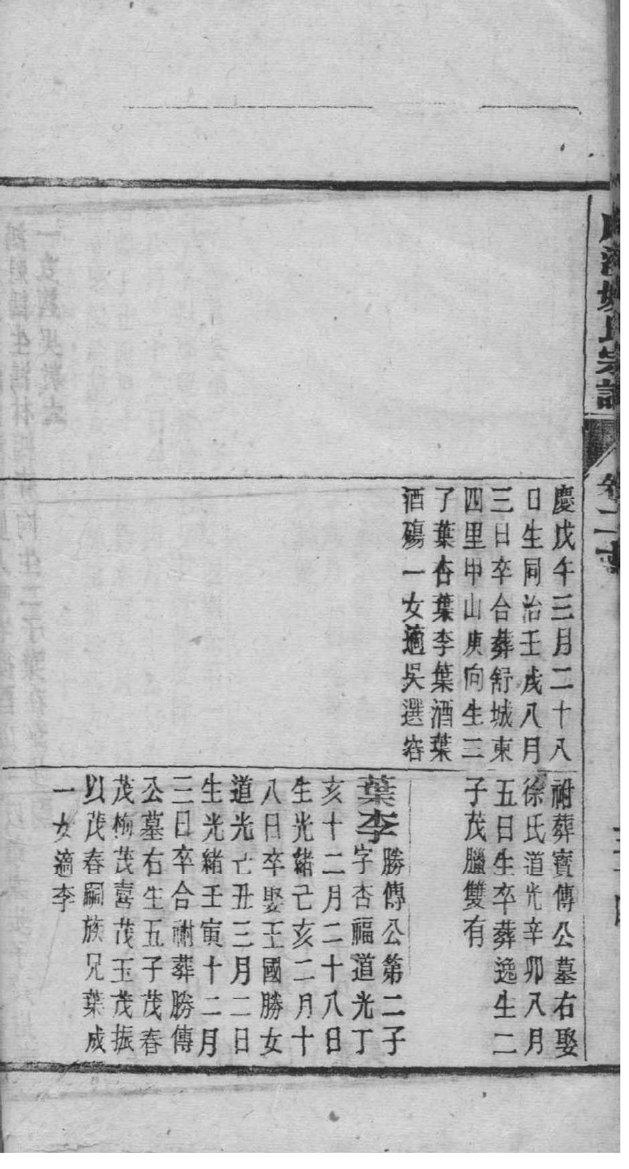 姚氏宗譜
卷二十
慶戊午三月二十八
日生同治壬戌八月
三日卒合葬舒城東
四里甲山庚向生三
了葉杏葉李葉酒葉
酒殤一女適吳選容
祔葬寶傳公墓右娶
徐氏道光辛卯八月
五日生卒葬逸生二
子茂臘雙有
葉李 勝傳公第二子
字杏福道光丁
亥十二月二十八日
生光緒己亥二月十
八日卒娶王國勝女
道光亡丑三月二日
生光緒壬寅十二月
三日卒合祔葬勝傳
公墓右生五子茂春
茂梅茂喜茂玉茂振
以茂春嗣族兄葉成
一女適李